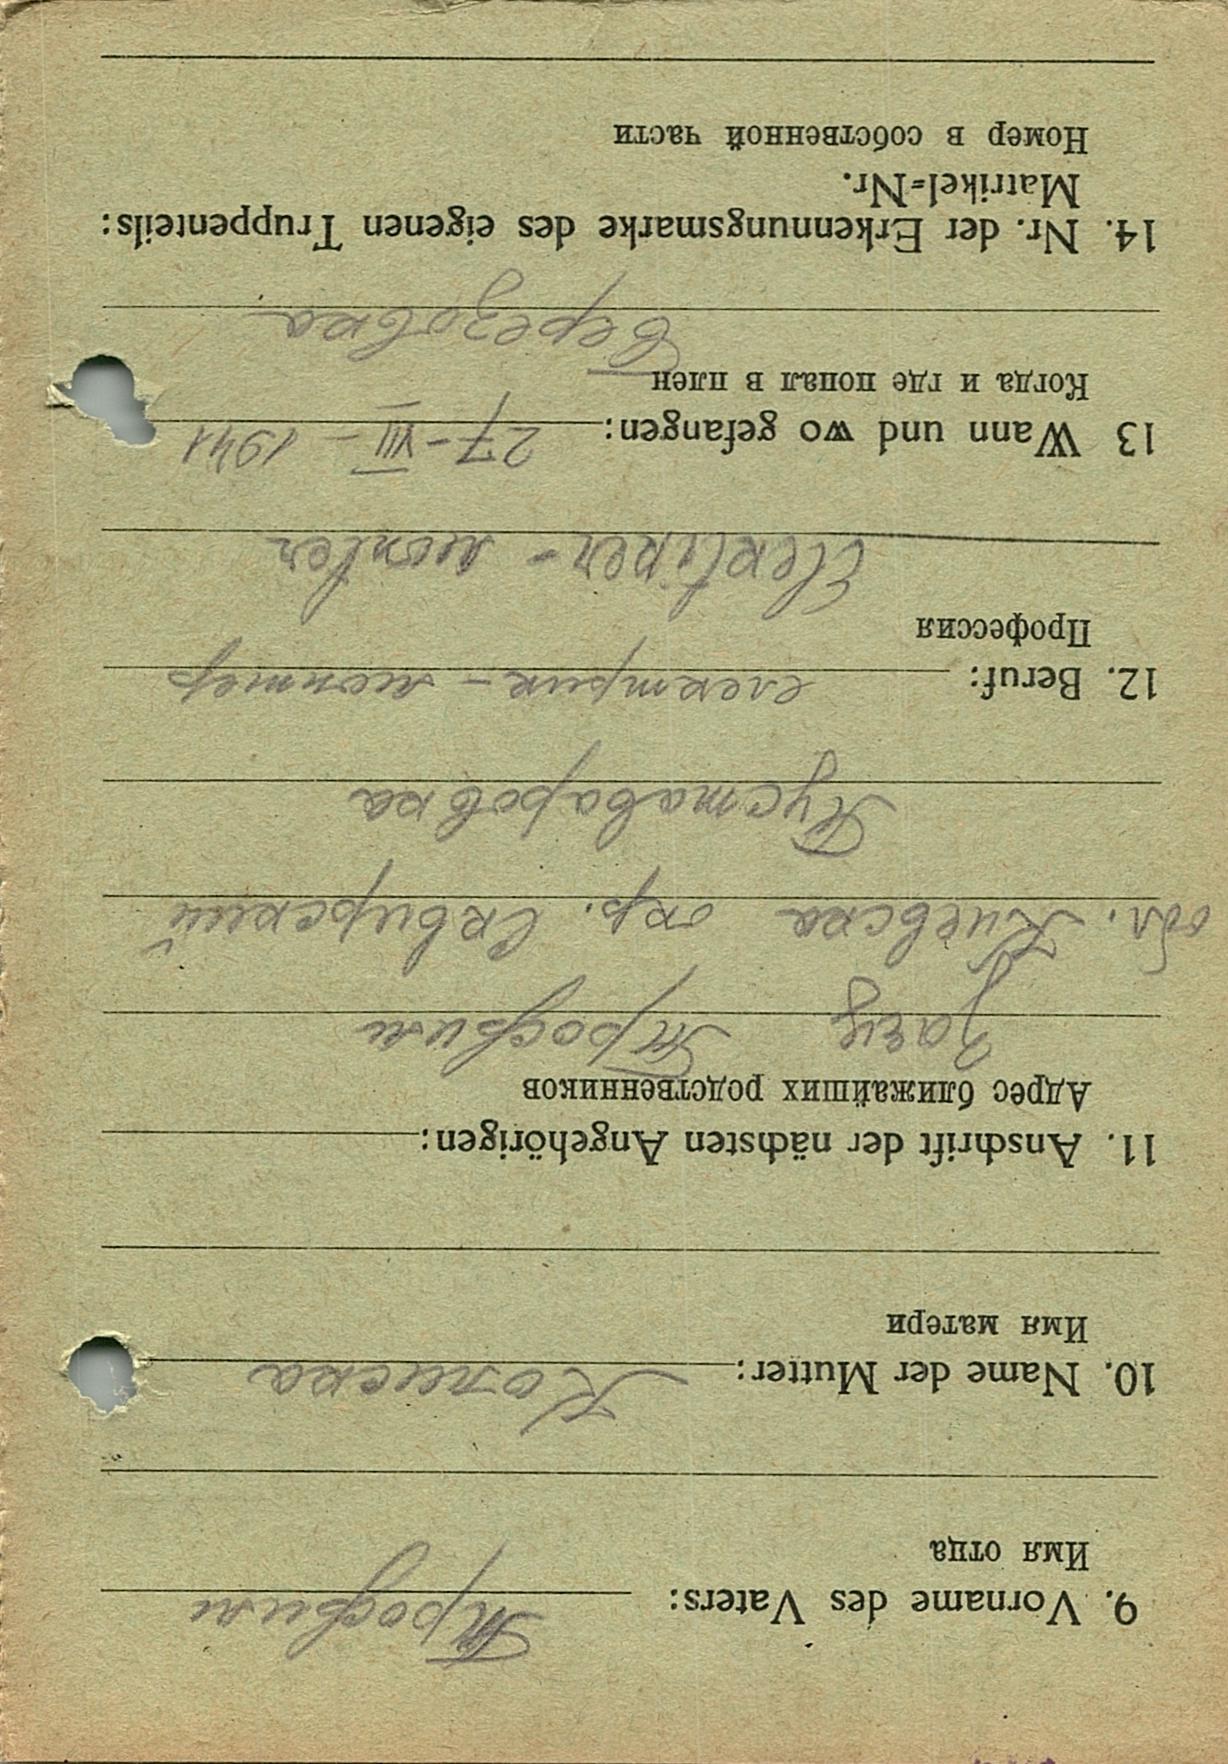 9. Vorname des Vaters: Трофим
Имя отца
10. Name der Mutter:
Имя матери
11. Anschrift der nächsten Angehörigen:
Адрес ближайших родственников
Заяц Трофим
обл. Киевска окр. Сквирский
Пуставаровка
12. Beruf: електрик - монтер
Профессия
Elektriker - monter
13 Wann und wo gefangen: 27-VII-1941
Когда и где попал в плен
Березовка
14. Nr. der Erkennungsmarke des eigenen Truppenteils:
Matrikel=Nr.
Номер в собственной части